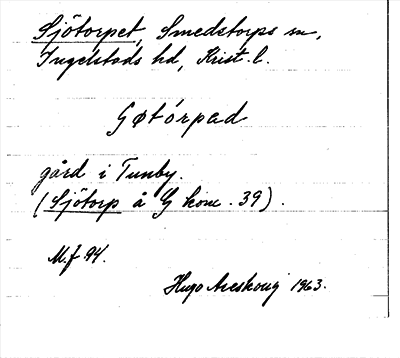 Sjötorpet, Smedstorps sn,
Ingelstads hd, Krist. l.
Sjøtórpad
gård i Tunby.
(Sjötorp å G kone. 39).
M.f 94.
Hugo Areskoug 1963.